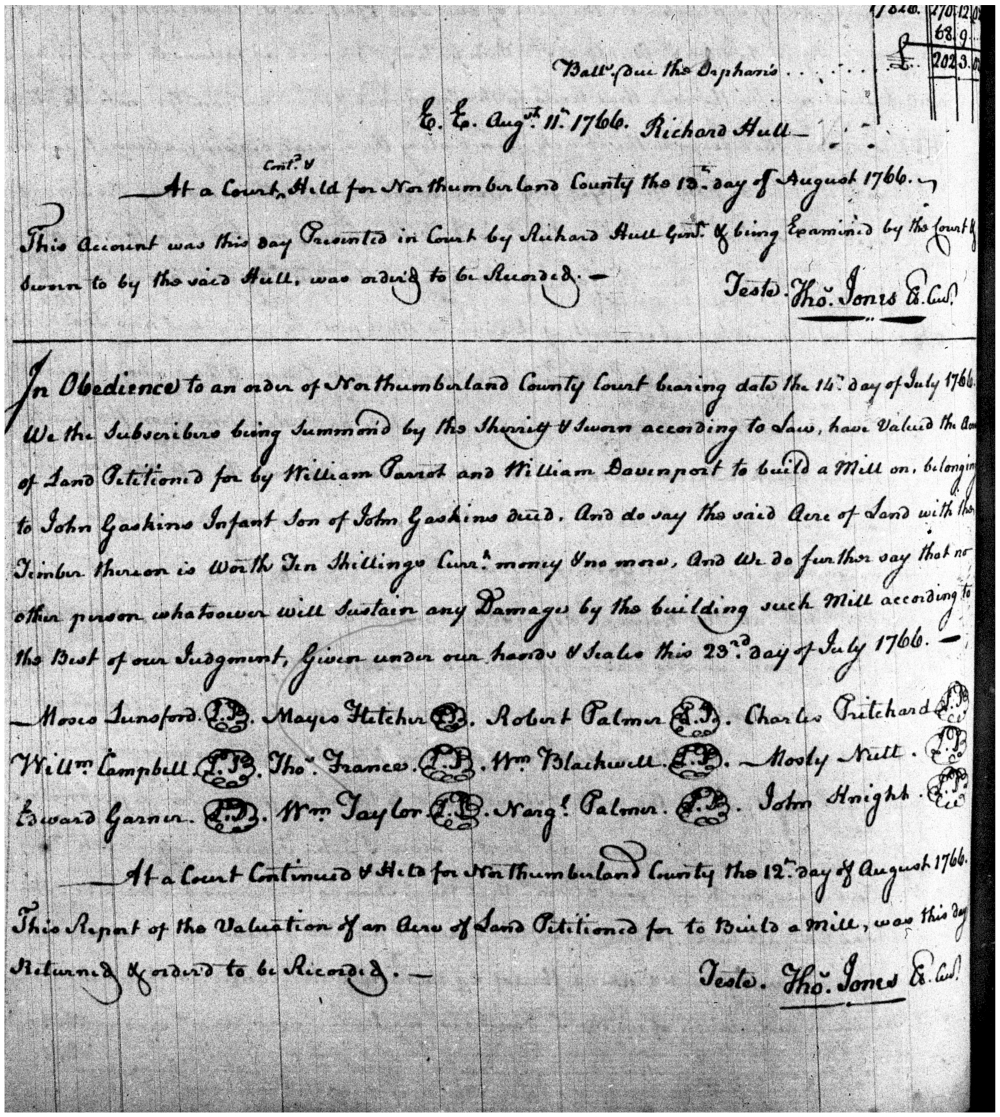 170.12.
68.9
202.3.0
Balle. due the Orphans . . . . . . .
E. E. Augst. 11th. 1766. Richard Hull
Contd. &
At a Court ^ Held for Northumberland County the 12th. day of August 1766.
This Account was this day Presented in Court by Richard Hull Gent. & being Examined by the Court &
Sworn to by the said Hull, was order'd to be Recorded. —
Teste. Thos. Jones Cl. Cur.
In Obedience to an order of Northumberland County Court bearing date the 14th. day of July 1766.
We the Subscribers being Summon'd by the Sherriff & Sworn according to Law, have Valued the
of Land Petitioned for by William Parrot and William Davenport to build a Mill on, belonging
to John Gaskins Infant Son of John Gaskins decd. And do say the said Acre of Land with the
Timber thereon is Worth Ten Shillings Currt. money & no more, And We do further say that no
other person whatsoever will Sustain any Damage by the building such Mill according to
the Best of our Judgment, Given under our hands & Seales this 23rd. day of July 1766. —
Moses Lunsford. L.S. Mayes Fletcher L.S. Robert Palmer L.S. Charles Pritchard L.S.
Willm. Campbell. L.S. Thos. France. L.S. Wm Blackwell. L.S. Mosly Nutt. L.S.
Edward Garner. L.S. Wm Taylor L.S. Palmer. L.S. John Knight. L.S.
At a Court Continued & Held for Northumberland County the 12th. day of August 1766.
This Report of the Valuation of an Acre of Land Petitioned for to Build a Mill, was this day
Returned & order'd to be Recorded. —
Teste. Thos. Jones Cl. Cur.